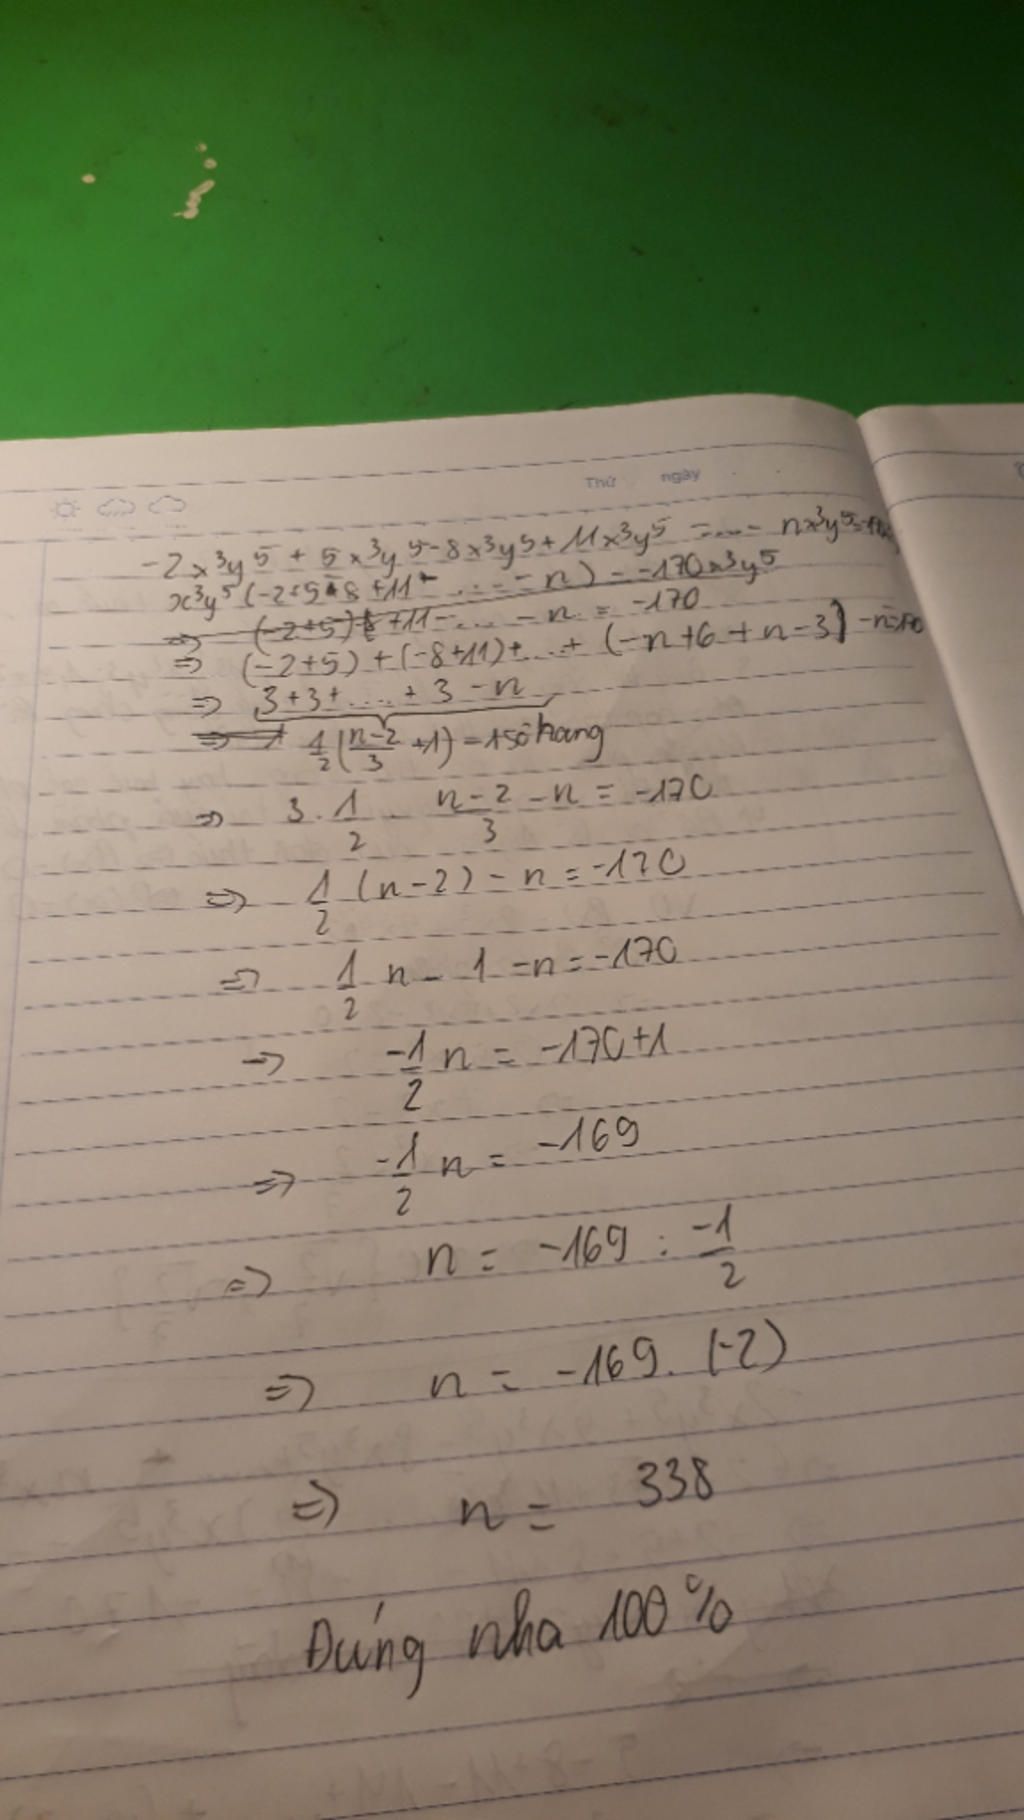 Thứ ngày
-2x³y⁵ + 5x³y⁵ - 8x³y⁵ + 11x³y⁵ - ... - nx³y⁵ =
x³y⁵(-2+5-8+11- ... - n) = -170x³y⁵
⇒ (-2+5) +11- ... - n = -170
⇒ (-2+5) + (-8+11) + ... + (-n+6+n-3) - n =
⇒ 3+3+ ... + 3 - n
⇒ 1/2 (n-2/3 + 1) - 1 số hạng
⇒ 3 . 1/2 . n-2/3 - n = -170
⇒ 1/2 (n-2) - n = -170
⇒ 1/2 n - 1 - n = -170
⇒ -1/2 n = -170+1
⇒ -1/2 n = -169
⇒ n = -169 : -1/2
⇒ n = -169 . (-2)
⇒ n = 338
Đúng nha 100%